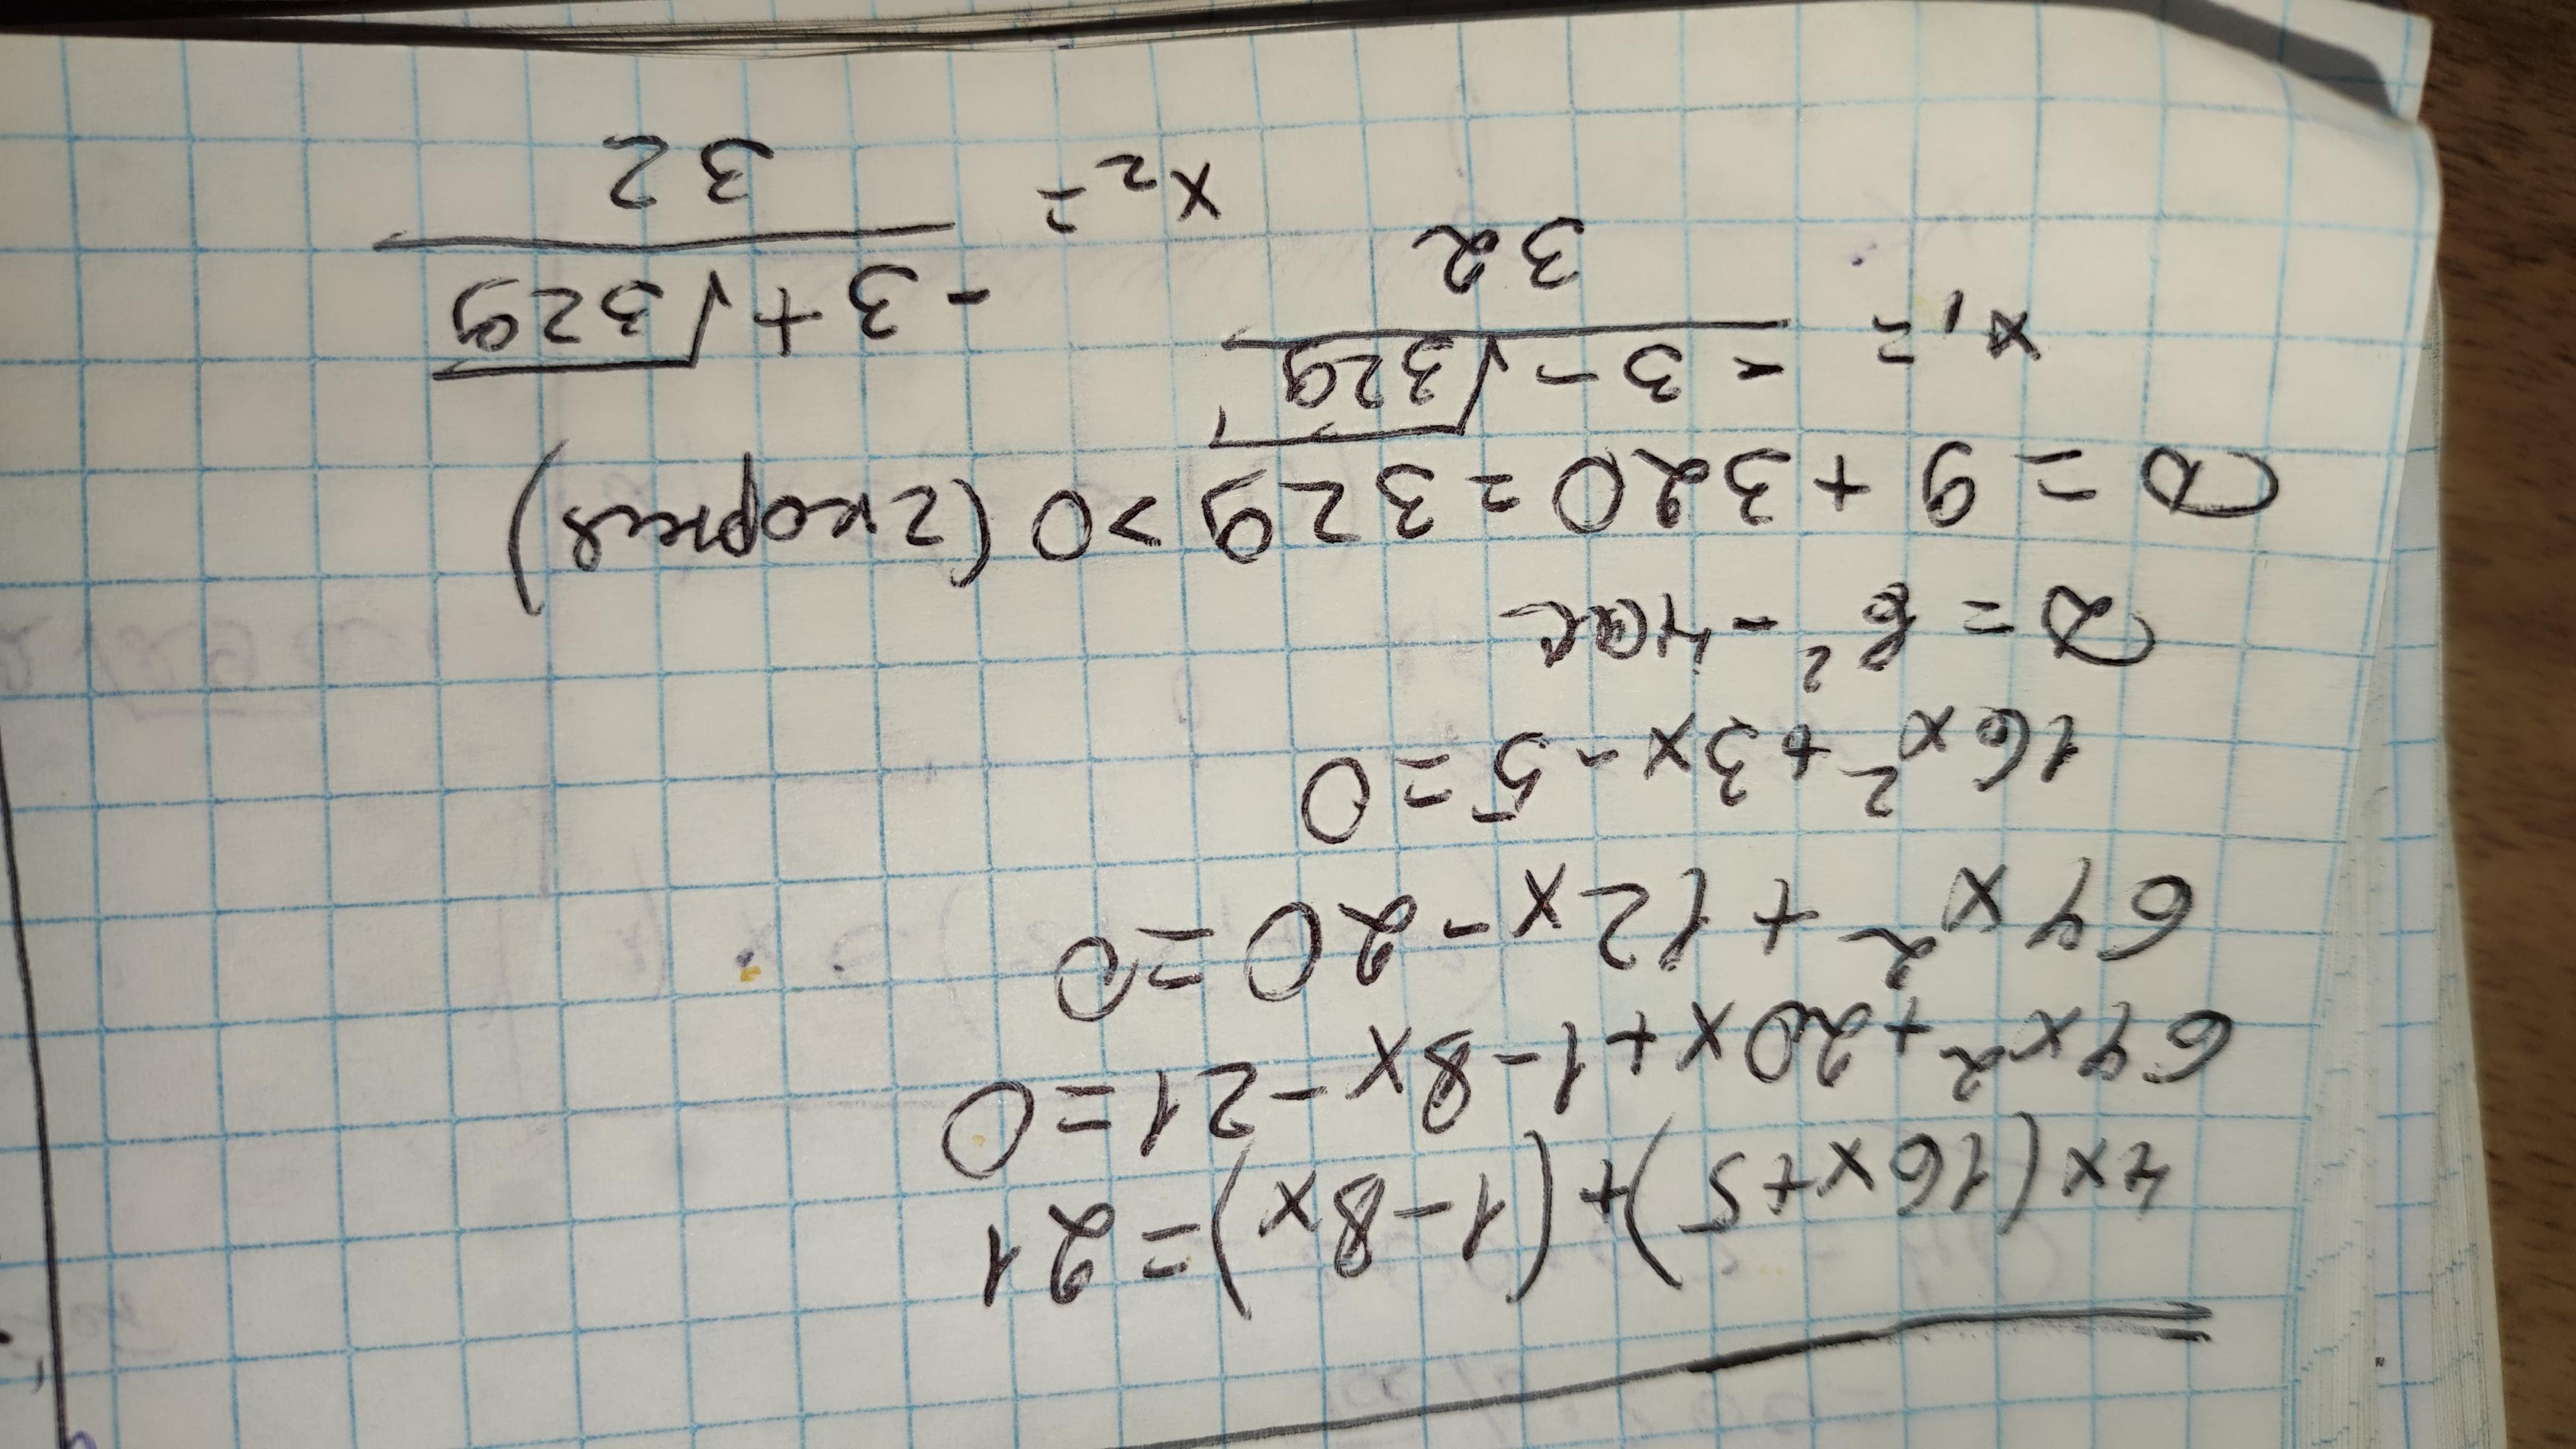 4x(16x+5)+(1-8x)=21
64x²+20x+1-8x-21=0
64x²+12x-20=0
16x²+3x-5=0
D=b²-4ac
D=9+320=329>0(2корня)
x₁= =3-√329/32 x₂= -3+√329/32